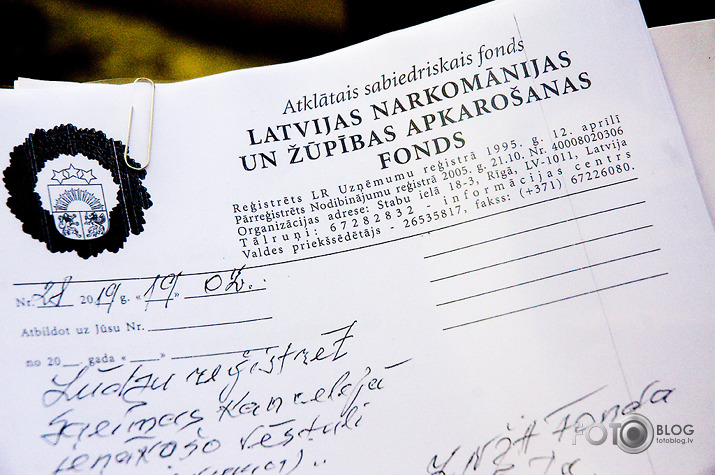 Atklātais sabiedriskais fonds
LATVIJAS NARKOMĀNIJAS
UN ŽŪPĪBAS APKAROŠANAS
FONDS
Reģistrēts LR Uzņēmumu reģistrā 1995. g. 12. aprīlī
Pārreģistrēts Nodibinājumu reģistrā 2005. g. 21.10. Nr. 40008020306
Organizācijas adrese: Stabu ielā 18-3, Rīgā, LV-1011, Latvija
Tālruņi: 67282832 - informācijas centrs
Valdes priekšsēdētājs - 26535817, fakss: (+371) 67226080.
Nr. 28 2019 g. «19» 02.
Atbildot uz Jūsu Nr.
no 20__. gada «____»
Lūdzu reģistrēt
Saeimas Kancelejā
ienākošo vēstuli
LNŽA Fonda
FOTO BLOG
fotoblog.lv